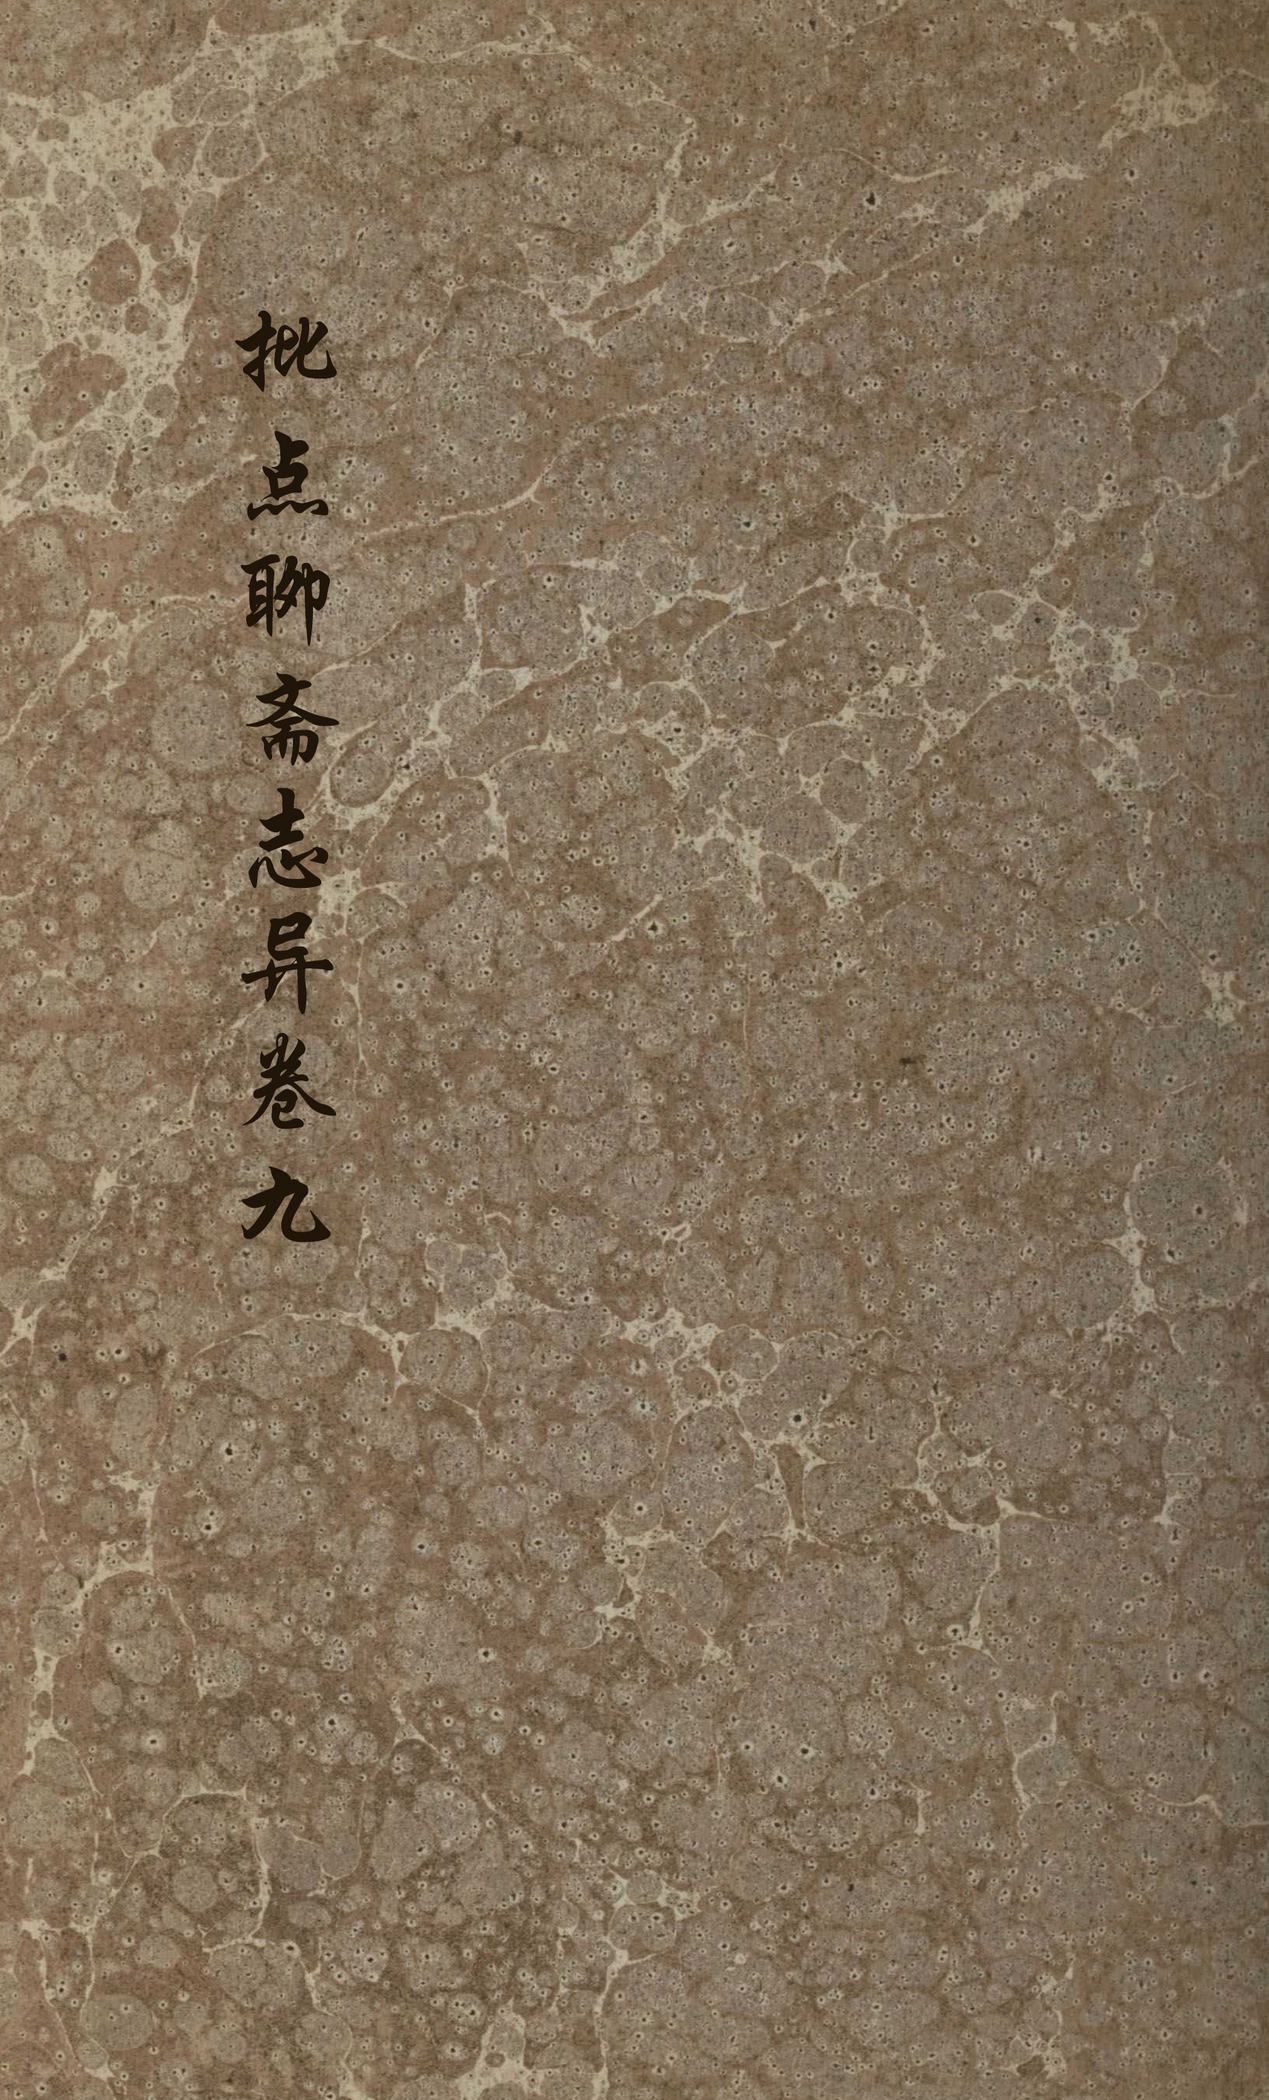 批点聊斋志异卷九